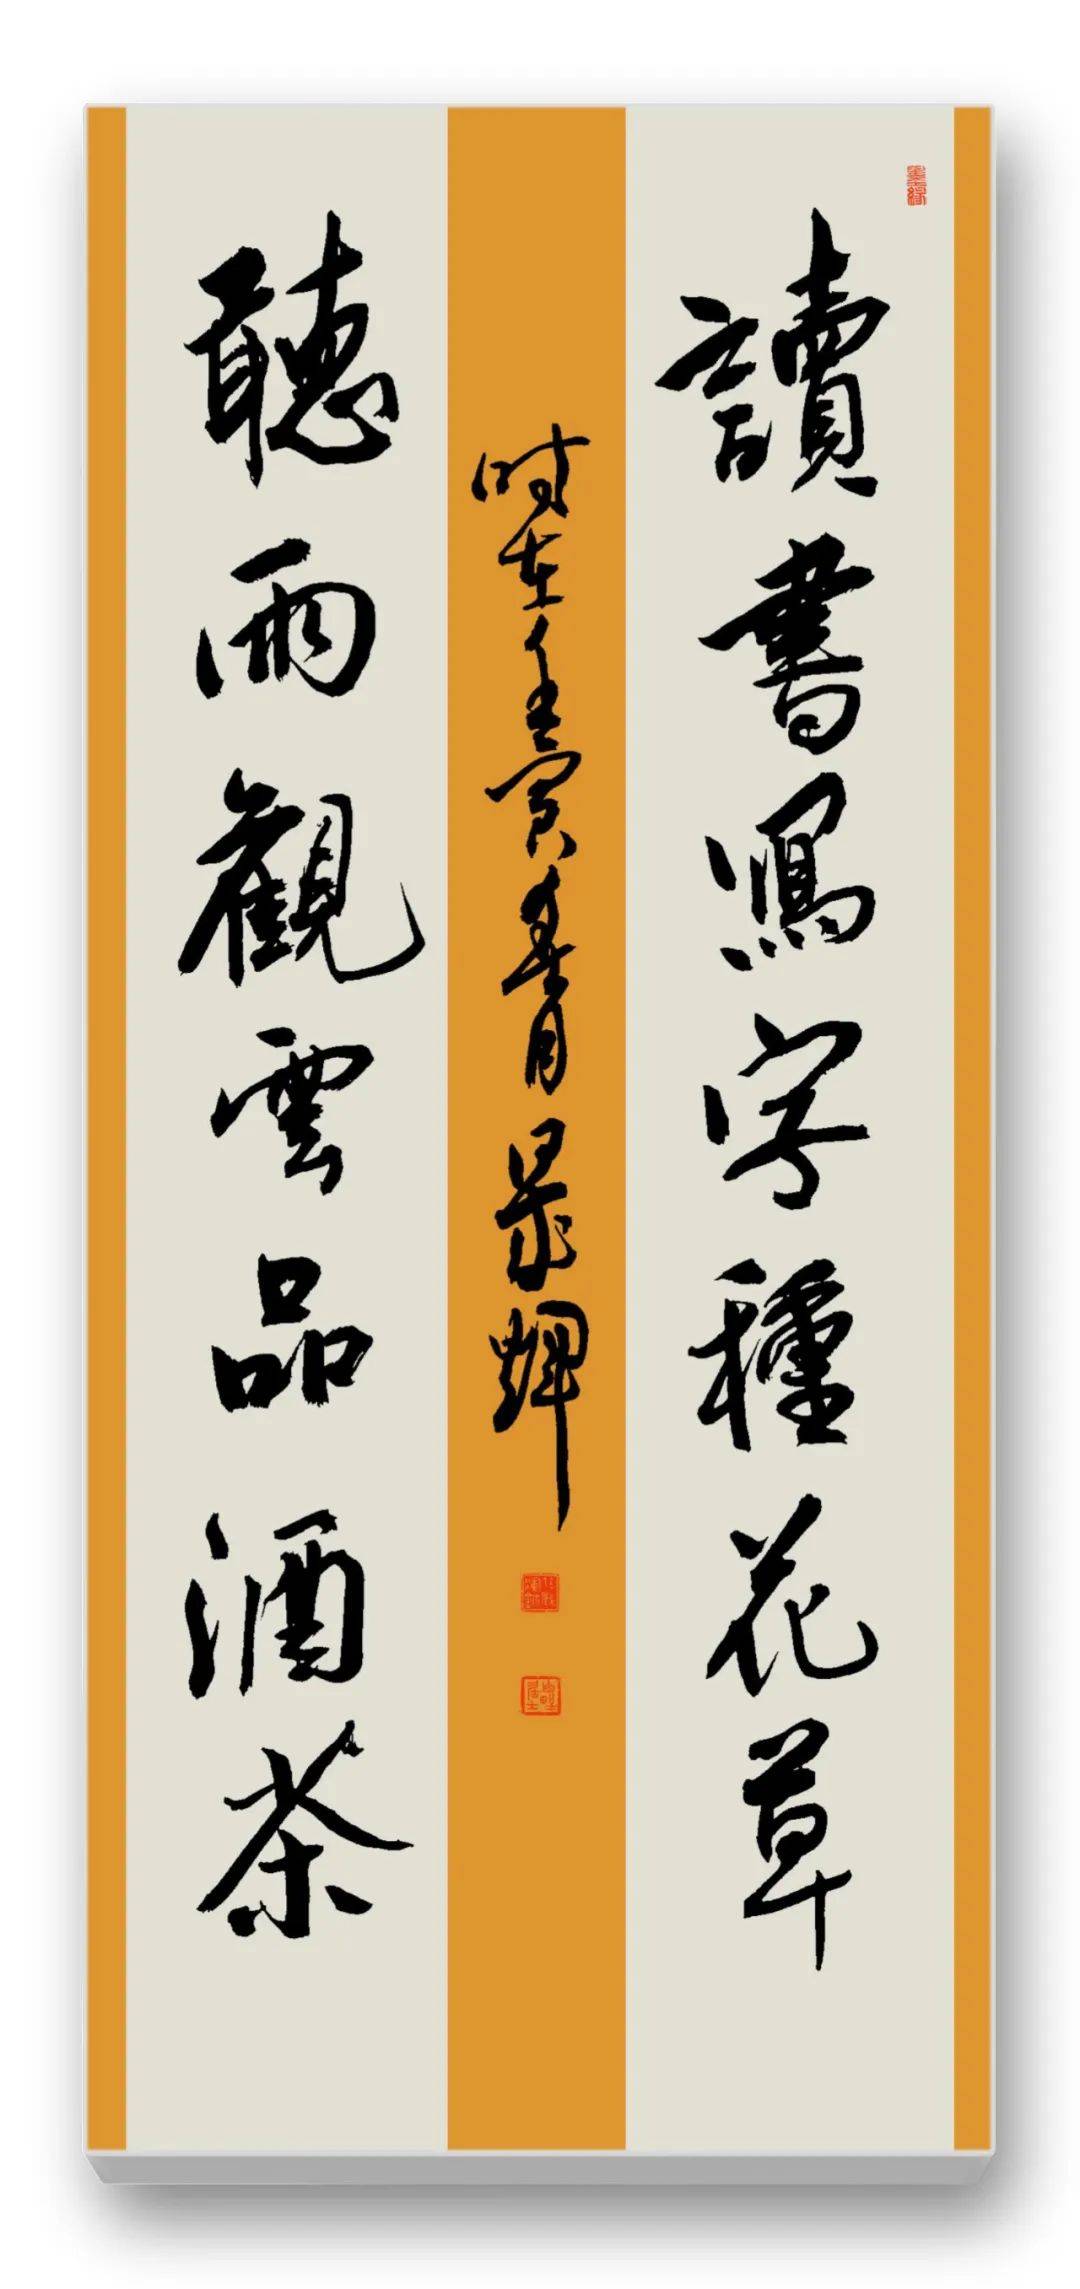 讀書寫字種花草
聽雨觀雲品酒茶
時在壬寅春月晨輝